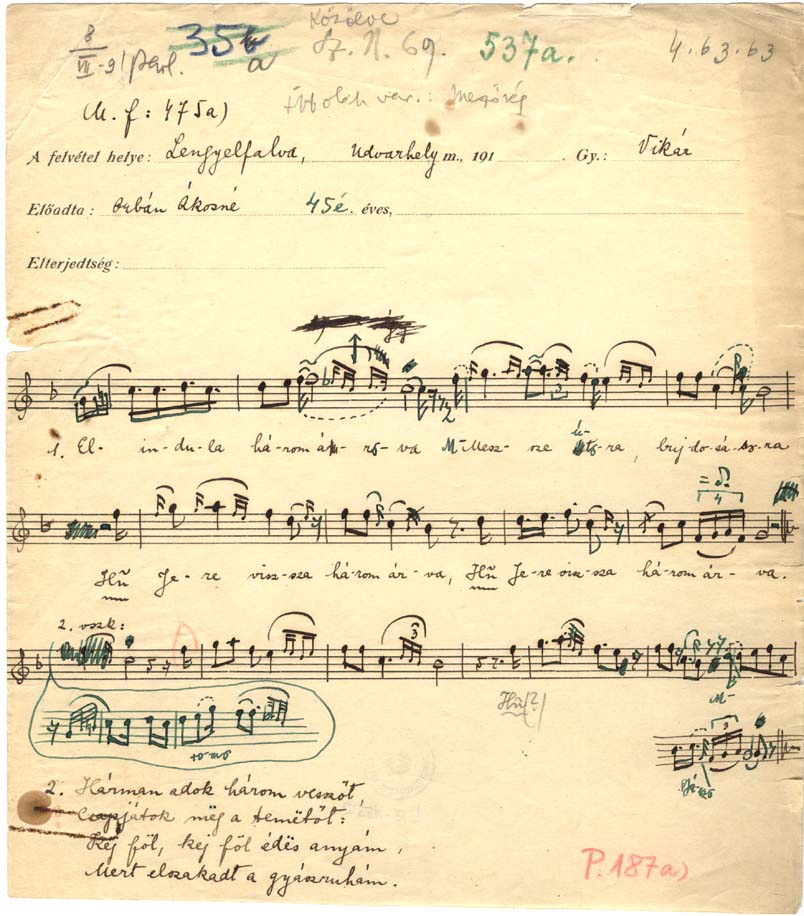 8
VII-9
35
a
Közölve
Sz. N. 69.
537a.
4. b3. b3
M. f: 475a)
var.:
A felvétel helye: Lengyelfalva, Udvarhely m., 191 . Gy.: Vikár
Előadta: Orbán Ákosné 45é. éves,
Elterjedtség:
1. El- in-du-la há-rom ár-va M- Mesz- sze út-ra, bujdo-sá-so-ra
Hű Je-re visz-sza há-rom ár-va, Hű Je-re visz-sza há-rom ár-va.
2. vszk:
3
4
3
Hű(?)
M-
3
2. Hárman adok három vesszőt
Csapjátok még a temétőt:
Kej föl, kej föl édés anyám,
Mert elszakadt a gyászruhám.
P. 187a)